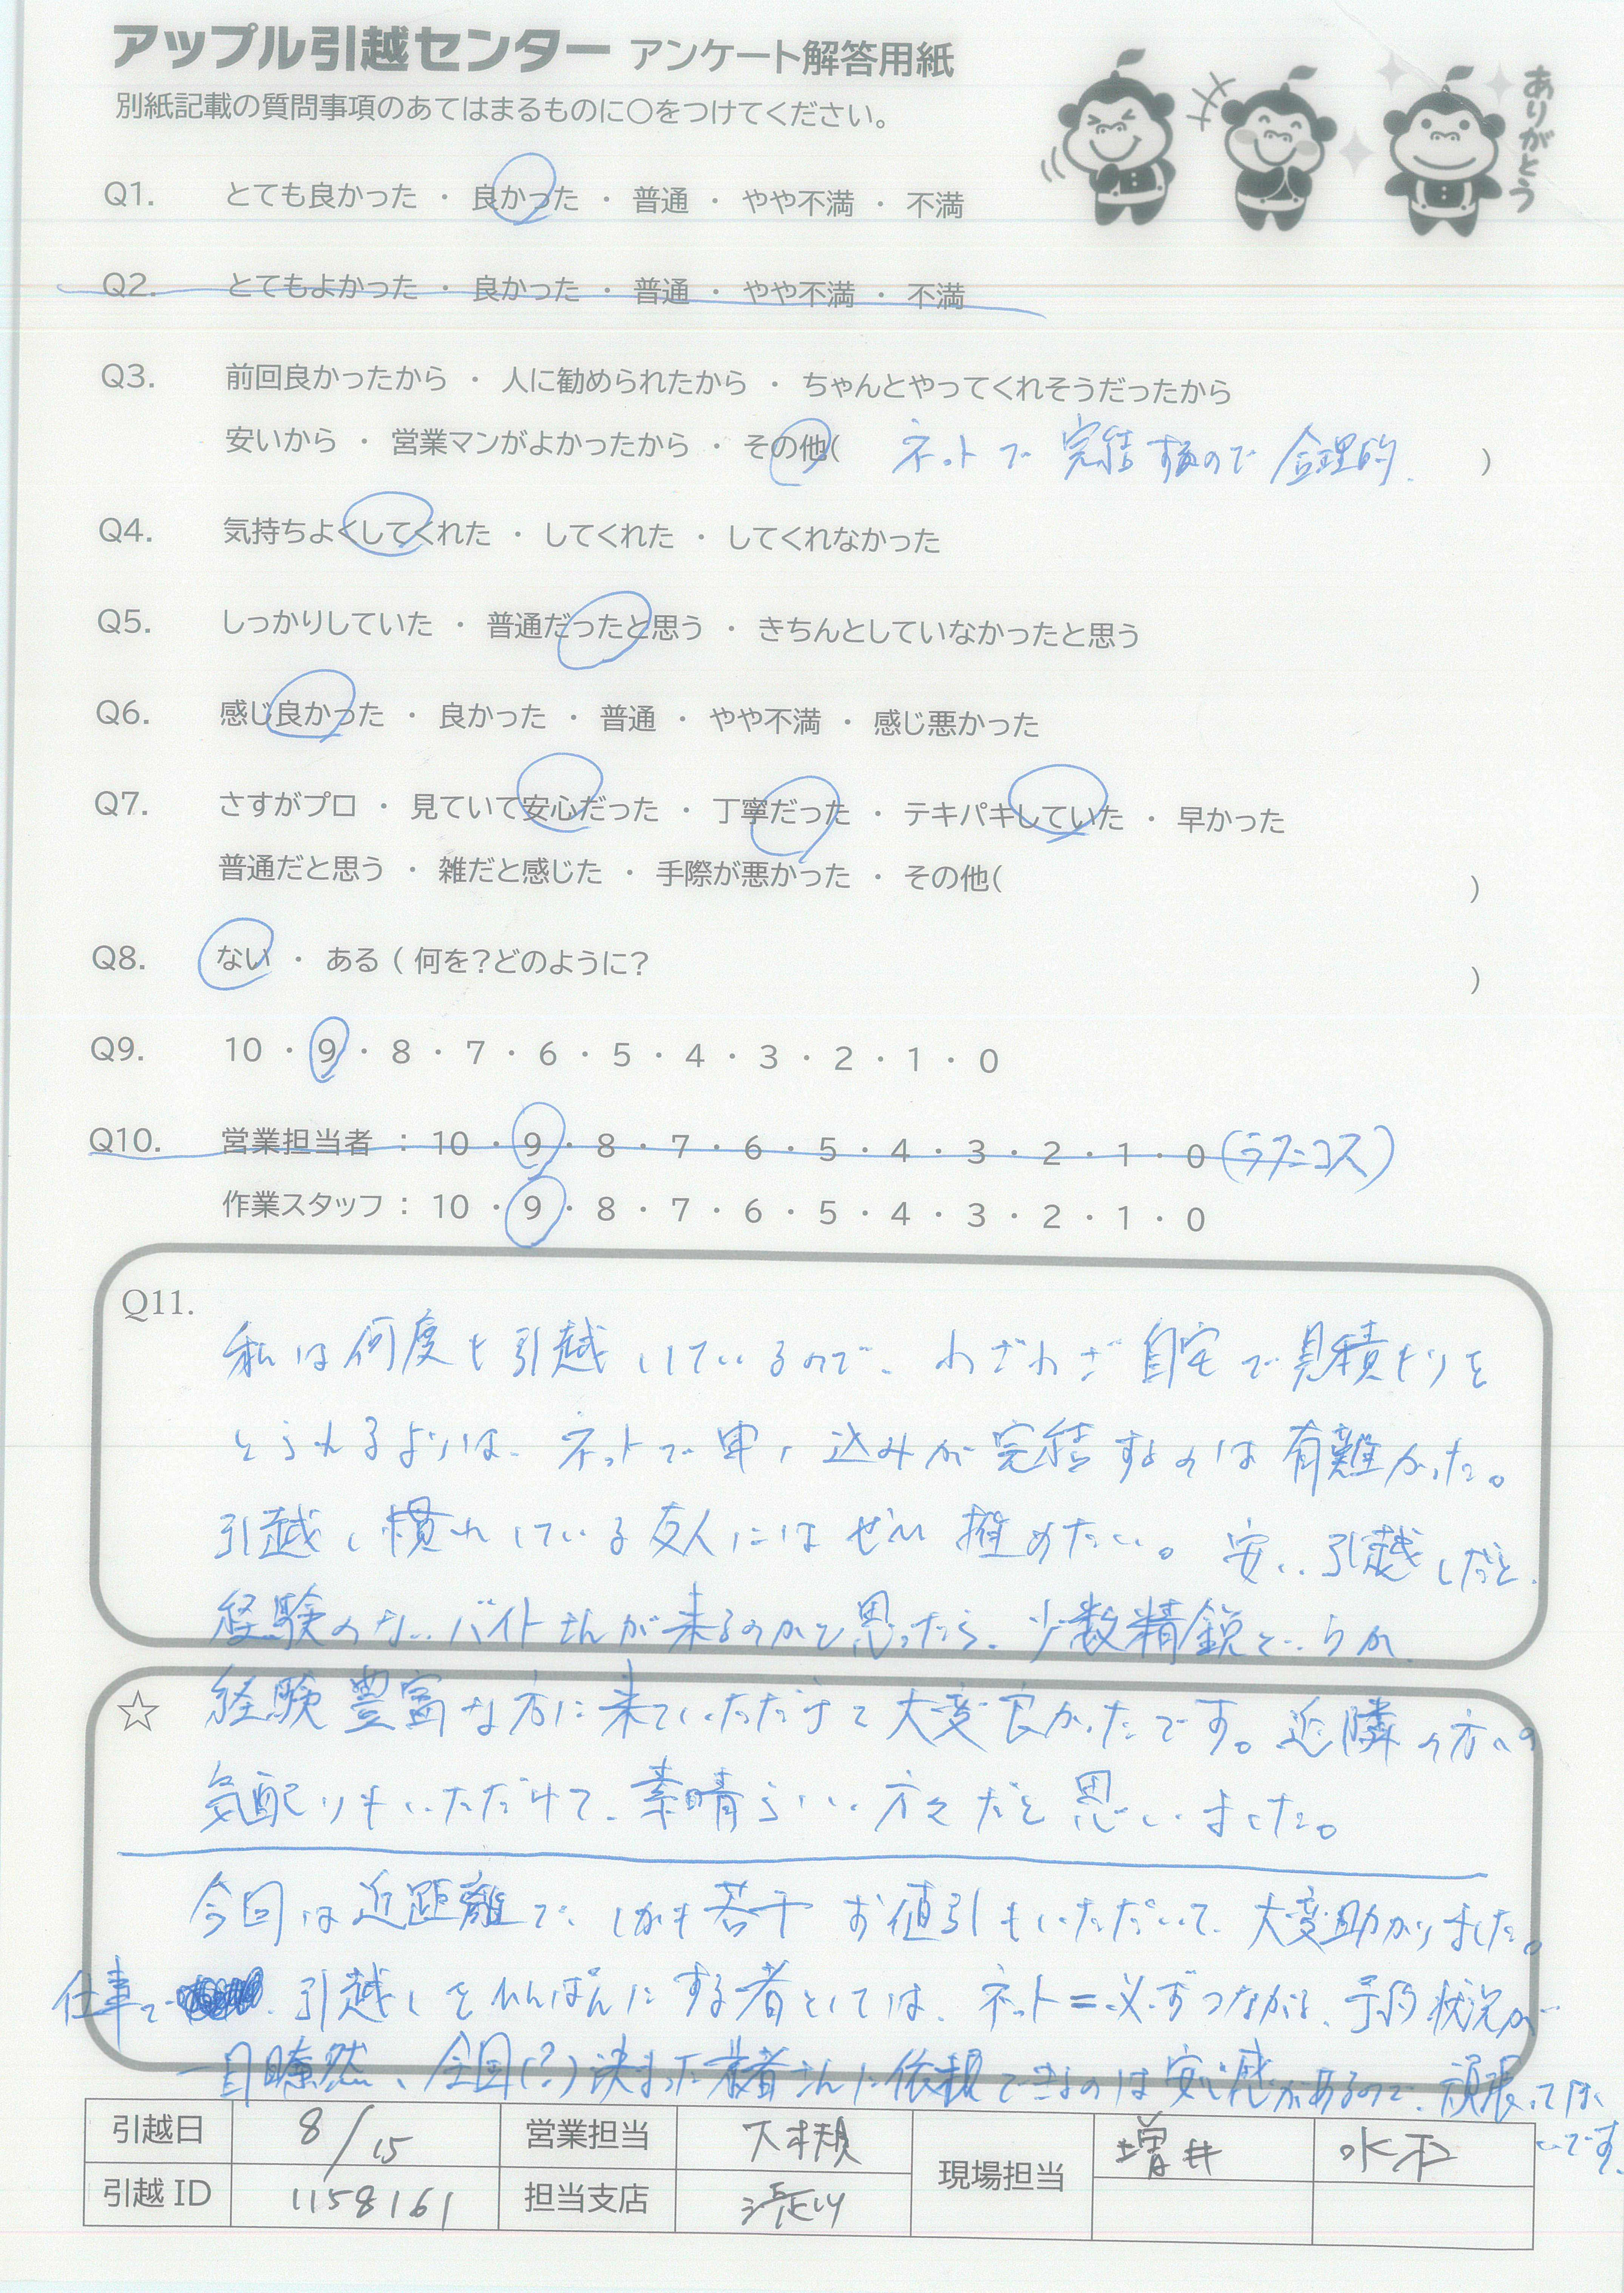 アップル引越センター アンケート解答用紙
別紙記載の質問事項のあてはまるものに〇をつけてください。
ありがとう
Q1. とても良かった ・ 良かった ・ 普通 ・ やや不満 ・ 不満
Q2. とてもよかった ・ 良かった ・ 普通 ・ やや不満 ・ 不満
Q3. 前回良かったから ・ 人に勧められたから ・ ちゃんとやってくれそうだったから
安いから ・ 営業マンがよかったから ・ その他( ネットで完結するので合理的. )
Q4. 気持ちよくしてくれた ・ してくれた ・ してくれなかった
Q5. しっかりしていた ・ 普通だったと思う ・ きちんとしていなかったと思う
Q6. 感じ良かった ・ 良かった ・ 普通 ・ やや不満 ・ 感じ悪かった
Q7. さすがプロ ・ 見ていて安心だった ・ 丁寧だった ・ テキパキしていた ・ 早かった
普通だと思う ・ 雑だと感じた ・ 手際が悪かった ・ その他( )
Q8. ない ・ ある ( 何を?どのように? )
Q9. 10 ・ 9 ・ 8 ・ 7 ・ 6 ・ 5 ・ 4 ・ 3 ・ 2 ・ 1 ・ 0
Q10. 営業担当者 : 10 ・ 9 ・ 8 ・ 7 ・ 6 ・ 5 ・ 4 ・ 3 ・ 2 ・ 1 ・ 0 (ラクニコス)
作業スタッフ : 10 ・ 9 ・ 8 ・ 7 ・ 6 ・ 5 ・ 4 ・ 3 ・ 2 ・ 1 ・ 0
Q11.
私は何度も引越しているので、わざわざ自宅で見積もりを
とられるよりは、ネットで申し込みが完結するのは有難かった。
引越し慣れしている友人にはぜひ推めたい。安い引越しだと、
経験のないバイトさんが来るのかと思ったら、少数精鋭というか、
☆ 経験豊富な方に来ていただけて大変良かったです。近隣の方への
気配りもいただけて、素晴らしい方々だと思いました。
今回は近距離で、しかも若干お値引もいただいて、大変助かりました。
仕事で 引越しをひんぱんにする者としては、ネット=必ずつながる、予約状況が
一目瞭然、全国(?)決まった業者さんに依頼できるのは安心感があるので、頑張ってほしいです。
引越日 8/15 営業担当 現場担当 増井 水石
引越ID 1158161 担当支店